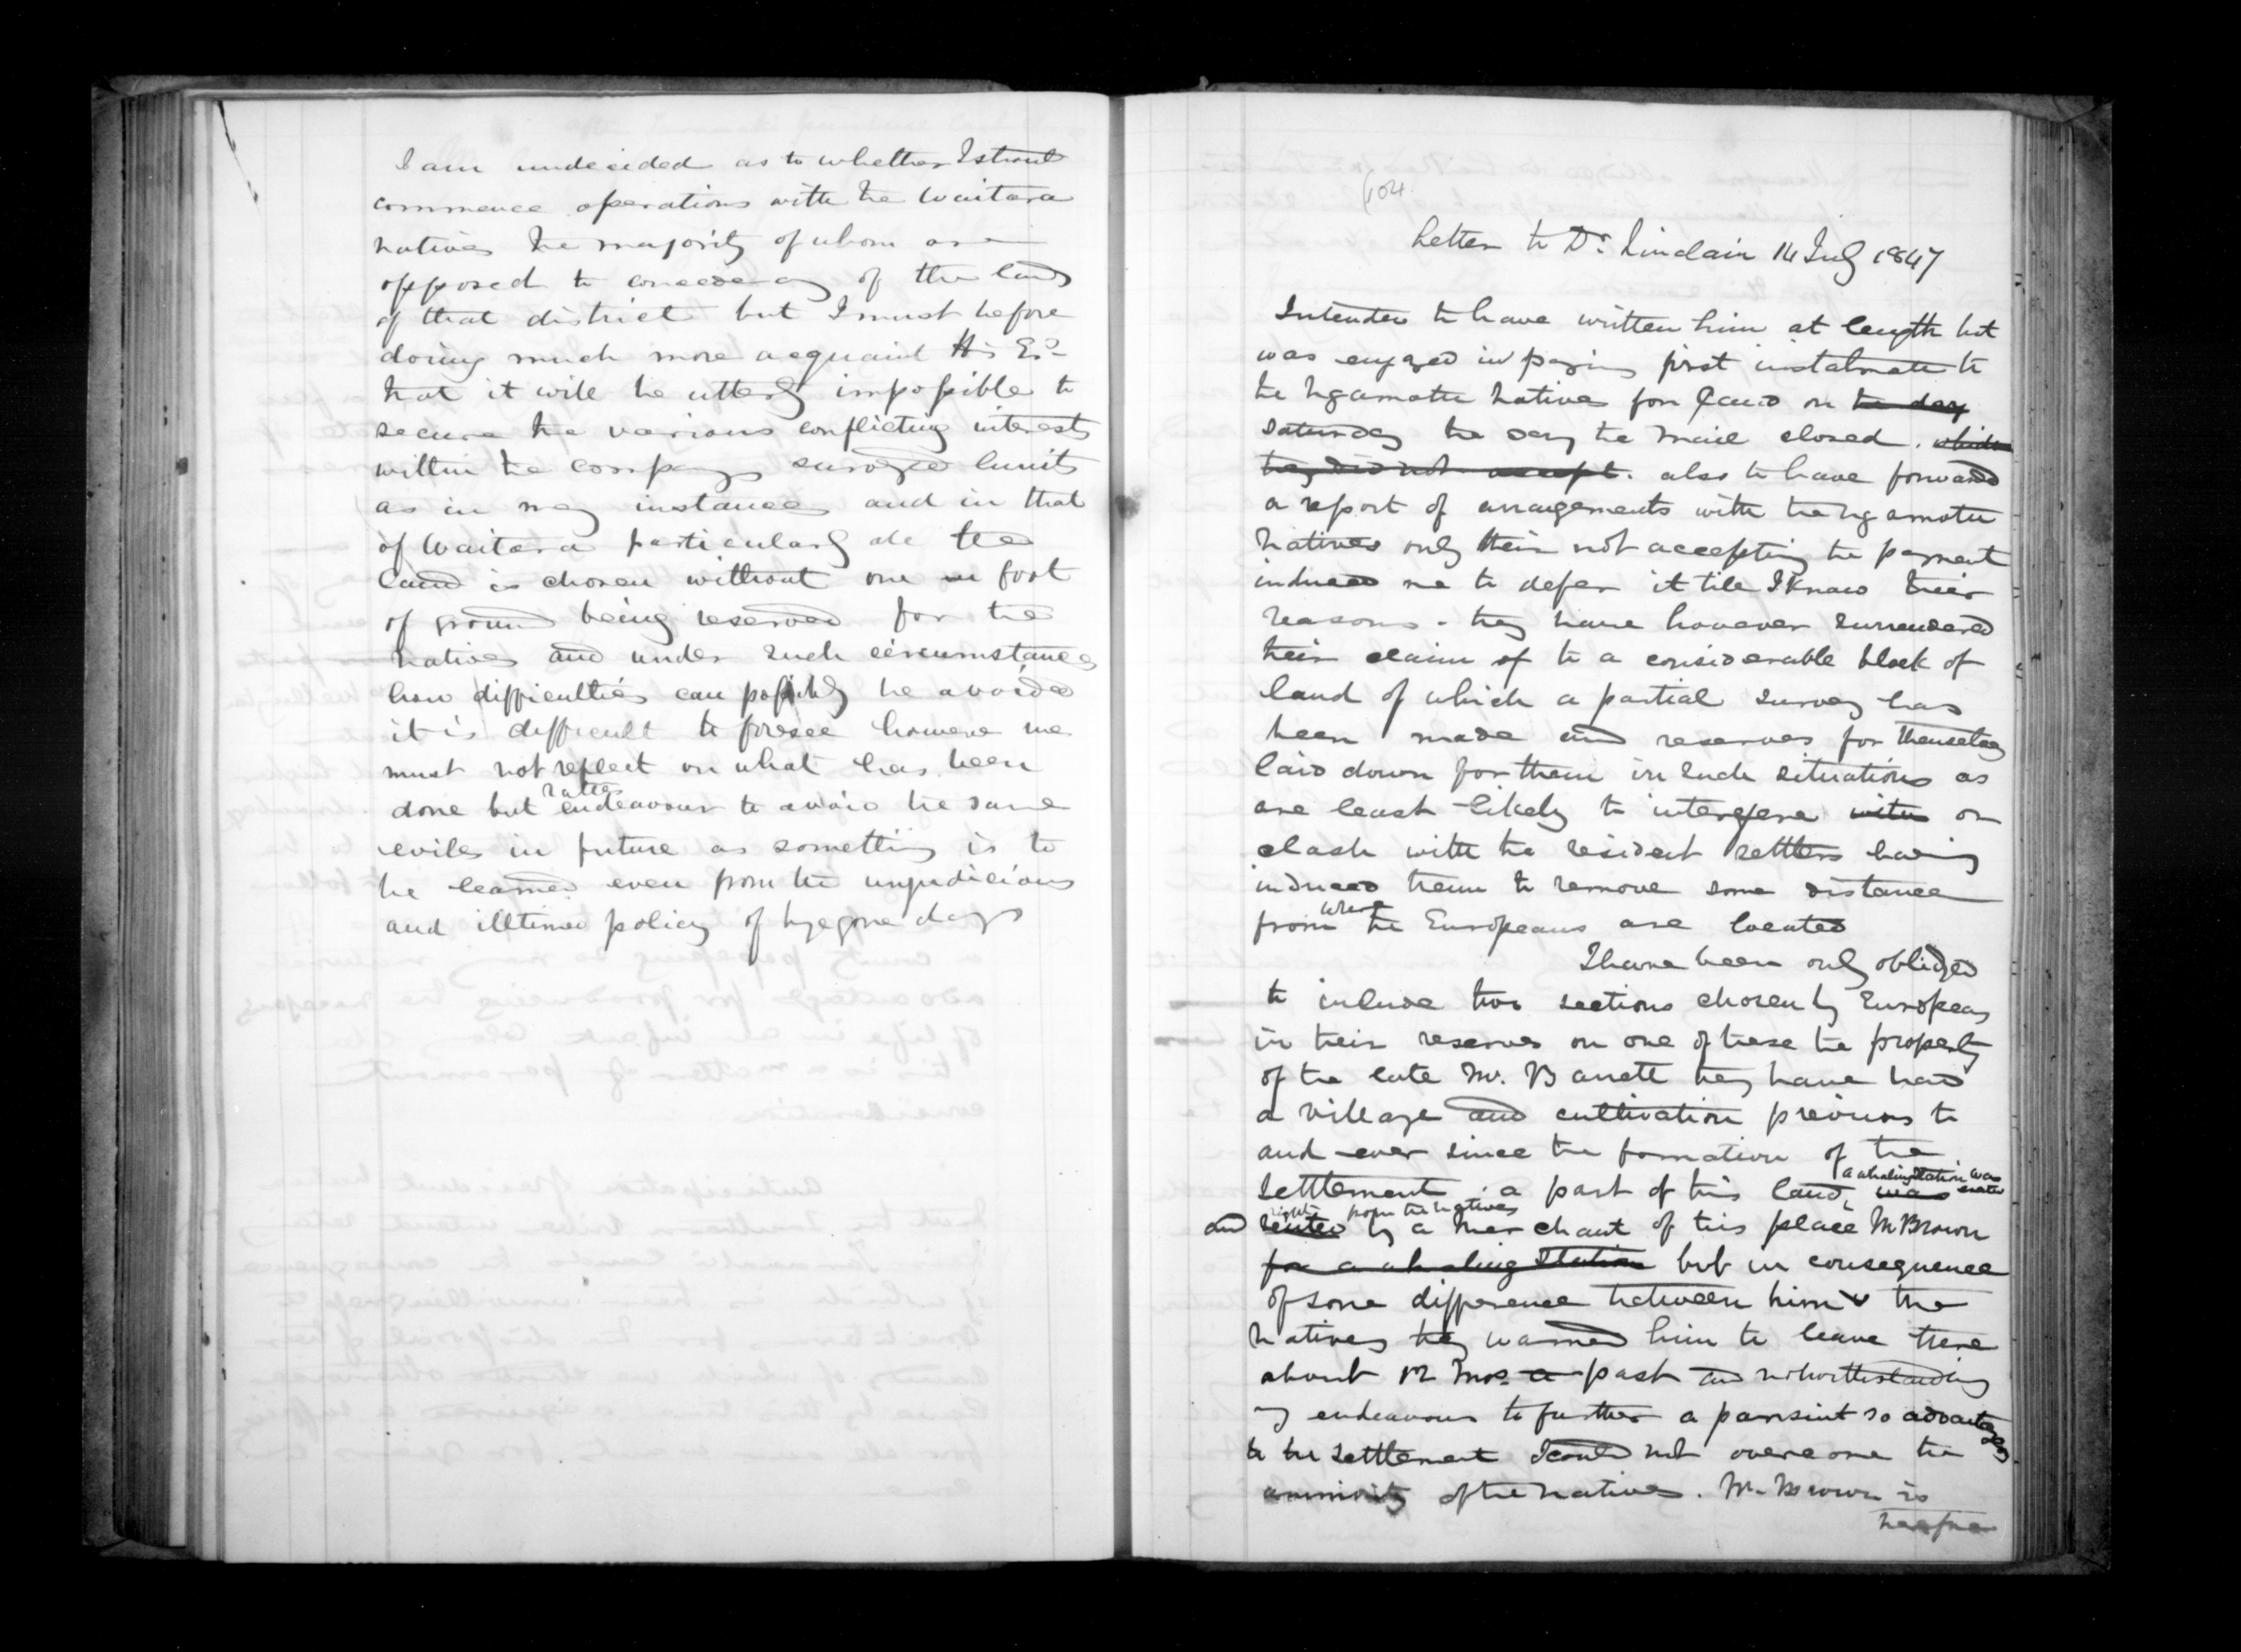 I am undecided as to whether I should
commence operations with the Waitara
natives the majority of whom are
opposed to conceding of the land
of that district but I must before
doing much more acquaint His Exc
that it will be utterly impossible to
secure the various conflicting interests
within the Companys surveyed limits
as in many instances and in that
of Waitara particularly all the
land is chosen without one foot
of ground being reserved for the
natives and under such circumstances
how difficulties can possibly be avoided
it is difficult to foresee however we
must not reflect on what has been
done but rather endeavour to avoid the same
evils in future as something is to
be learned even from the unjudicious
and illtimed policy of byegone days
104
Letter to Dr. Sinclair 14 July 1847
Intended to have written him at length but
was engaged in paying first instalments to
the Ngamotu natives for land on the day
Saturday the day the mail closed. which
they did not accept. also to have forwarded
a report of arrangements with the Ngamotu
natives only their not accepting the payment
induced me to defer it till I know their
reasons - they have however surrendered
their claim of to a considerable block of
land of which a partial survey has
been made and reserves for themselves
laid down for them in such situations as
are least likely to interfere with or
clash with the resident settlers having
induced them to remove some distance
from where the Europeans are located
I have been only obliged
to include two sections chosen by Europeans
in their reserves on one of these the property
of the late Mr. Barrett they have had
a village and cultivation previous to
and ever since the formation of the
Settlement. a part of this land, a whaling station was was
and rented from the natives by a merchant of this place Mr Brown
for a whaling Station but in consequence
of some difference between him & the
natives they warned him to leave there
about 12 mos. a past and notwithstanding
my endeavour to further a pursuit so advantageous
to the settlement I could not overcome the
animosity of the natives. Mr. Brown is
therefore